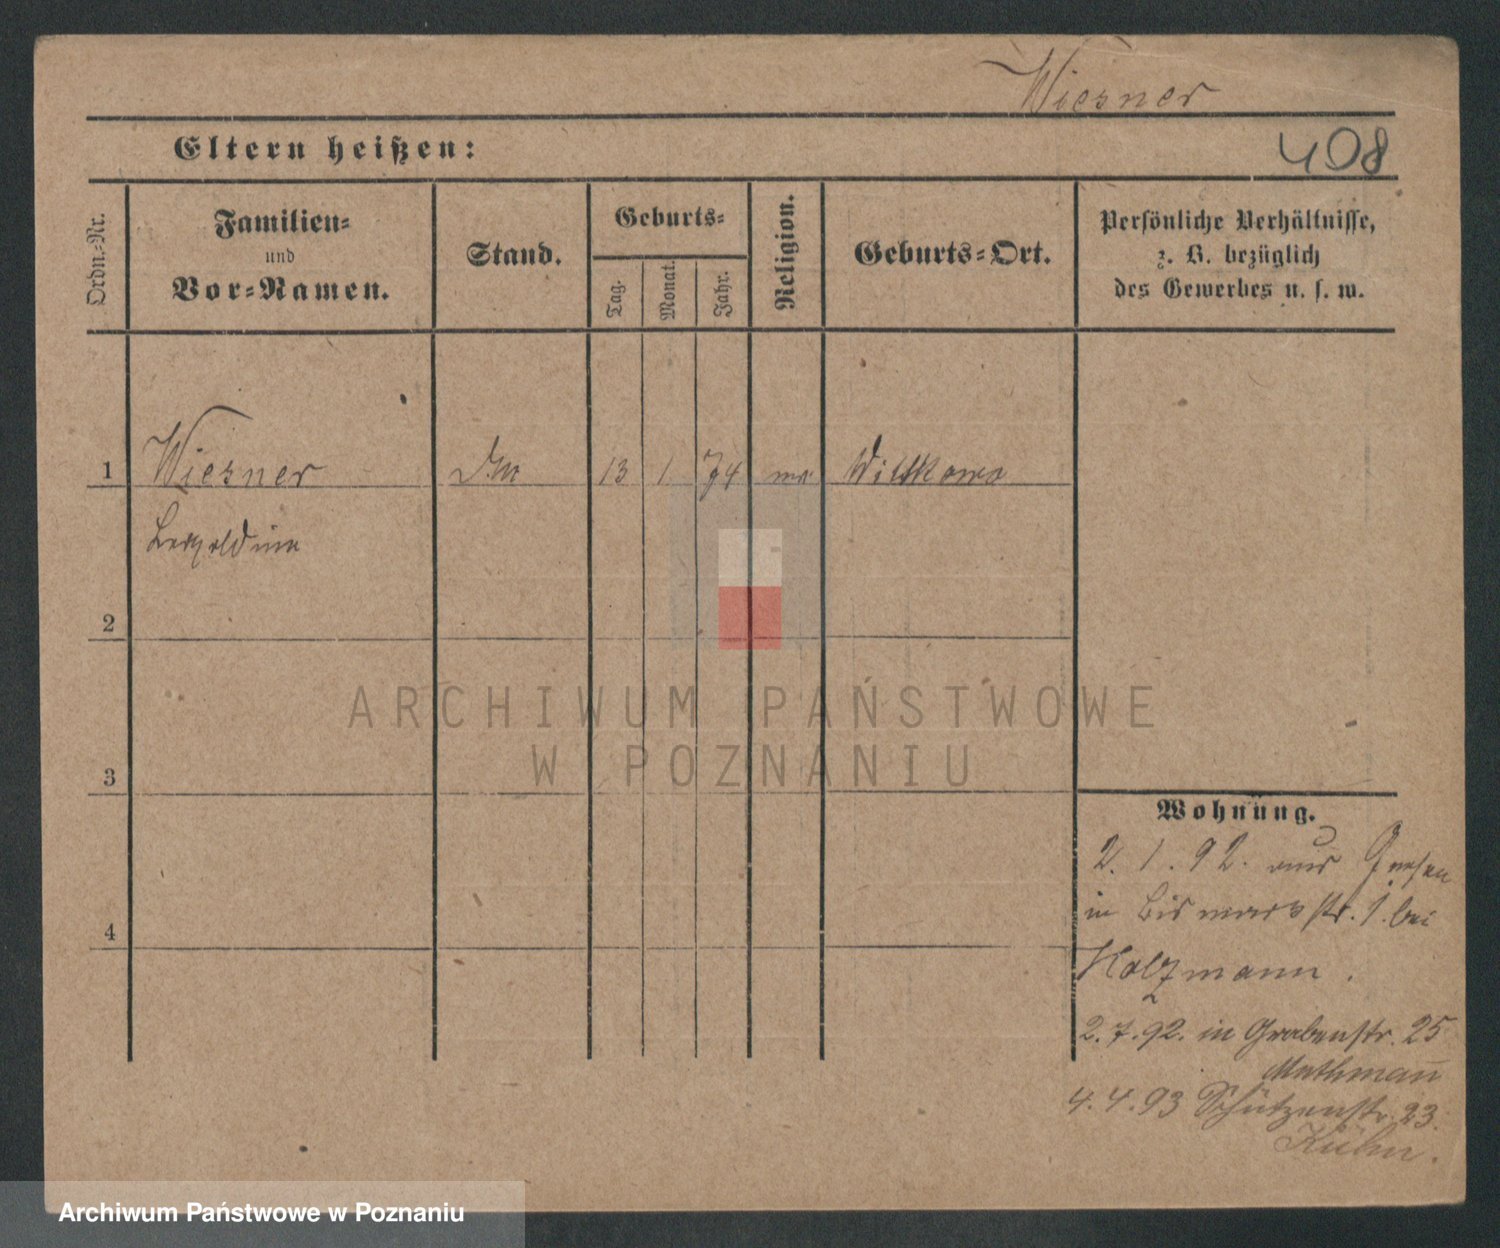 Wiesner
408
Eltern heißen:
Ordn.=Nr.
Familien=
und
Vor=Namen.
Stand.
Geburts=
Tag.
Monat.
Jahr.
Religion.
Geburts=Ort.
Persönliche Verhältnisse,
z. B. bezüglich
des Gewerbes u. s. w.
1 Wiesner 13 1 74 Wittkowo
Leopoldine
2
3
4
ARCHIWUM PAŃSTWOWE
W POZNANIU
Wohnung.
2. 1. 92. aus Gnesen
in Bismarckstr. 1. bei
Holzmann.
2. 7. 92. in Grabenstr. 25
4. 4. 93 Schützenstr. 23.
Kühn.
Archiwum Państwowe w Poznaniu